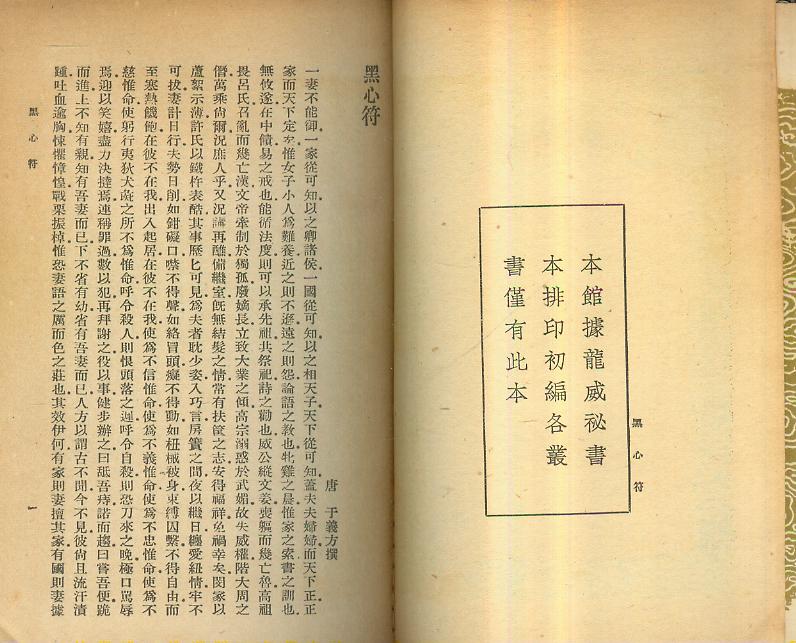 本館據龍威祕書
本排印初編各叢
書僅有此本
黑心符
黑心符
唐 于義方撰
一妻不能御一家從可知以之卿諸侯一國從可知以之相天子天下從可知蓋夫夫婦婦而天下正正
家而天下定矣惟女子小人爲難養近之則不遜遠之則怨論語之教也牝雞之晨惟家之索書之訓也
無攸遂在中饋易之戒也能循法度則可以承先祖共祭祀詩之勸也威公縱文姜喪軀而幾亡魯高祖
畏呂氏召亂而幾亡漢文帝牽制於獨孤廢嫡長立致大業之傾高宗溺惑於武媚故失威權階大周之
僭萬乘尙爾況庶人乎又況講再醮備繼室旣無結髮之情常有扶筐之志安得福祥免禍幸矣閔家以
蘆絮示薄許氏以鐵杵表酷其事歷匕可見爲夫者耽少姿入巧言房簀之間夜以繼日纏愛紐情牢不
可拔妻計日行夫勢日削如鉗礙口噤不得聲如絡冒頭癡不得動如杻械被身束縛囚繫不得自由而
至寒熱饑飽在彼不在我出入起居在彼不在我使爲不信惟命使爲不義惟命使爲不忠惟命使爲不
慈惟命使躬行夷狄犬彘之所不爲惟命呼令殺人則恨頭落之遲呼令自殺則恐刀來之晚極口罵辱
焉迎以笑嬉盡力決撻焉連稱罪過數以犯再拜謝之役以事健步辦之曰舐吾痔諾而趨曰嘗吾便跪
而進上不知有親知有吾妻而已下不省有幼省有吾妻而已人方以謂古不聞今不見彼尙且流汗漬
踵吐血逾胸悚懼慞惶戰栗振棹惟恐妻語之厲而色之莊也其效伊何有家則妻擅其家有國則妻據
黑心符
一